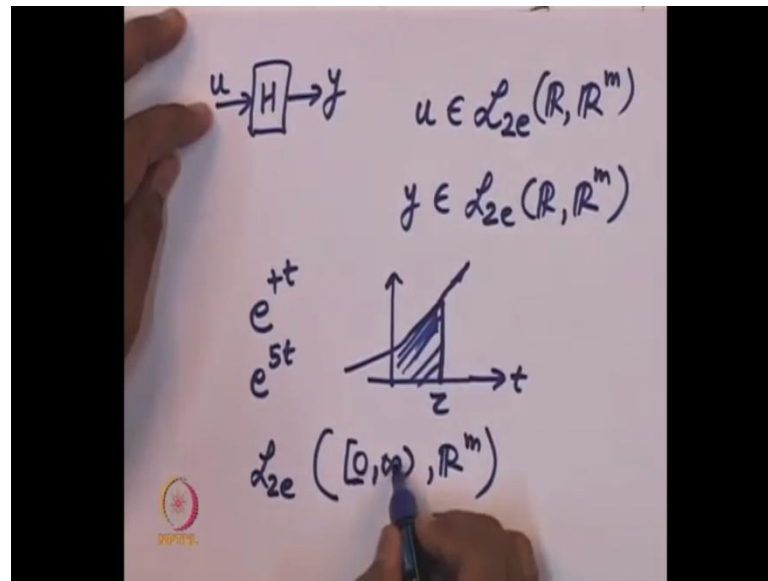 u → H → y
u ∈ ℒ₂ₑ(ℝ, ℝᵐ)
y ∈ ℒ₂ₑ(ℝ, ℝᵐ)
e⁺ᵗ
e⁵ᵗ
τ
t
ℒ₂ₑ([0,∞), ℝᵐ)
NPTEL